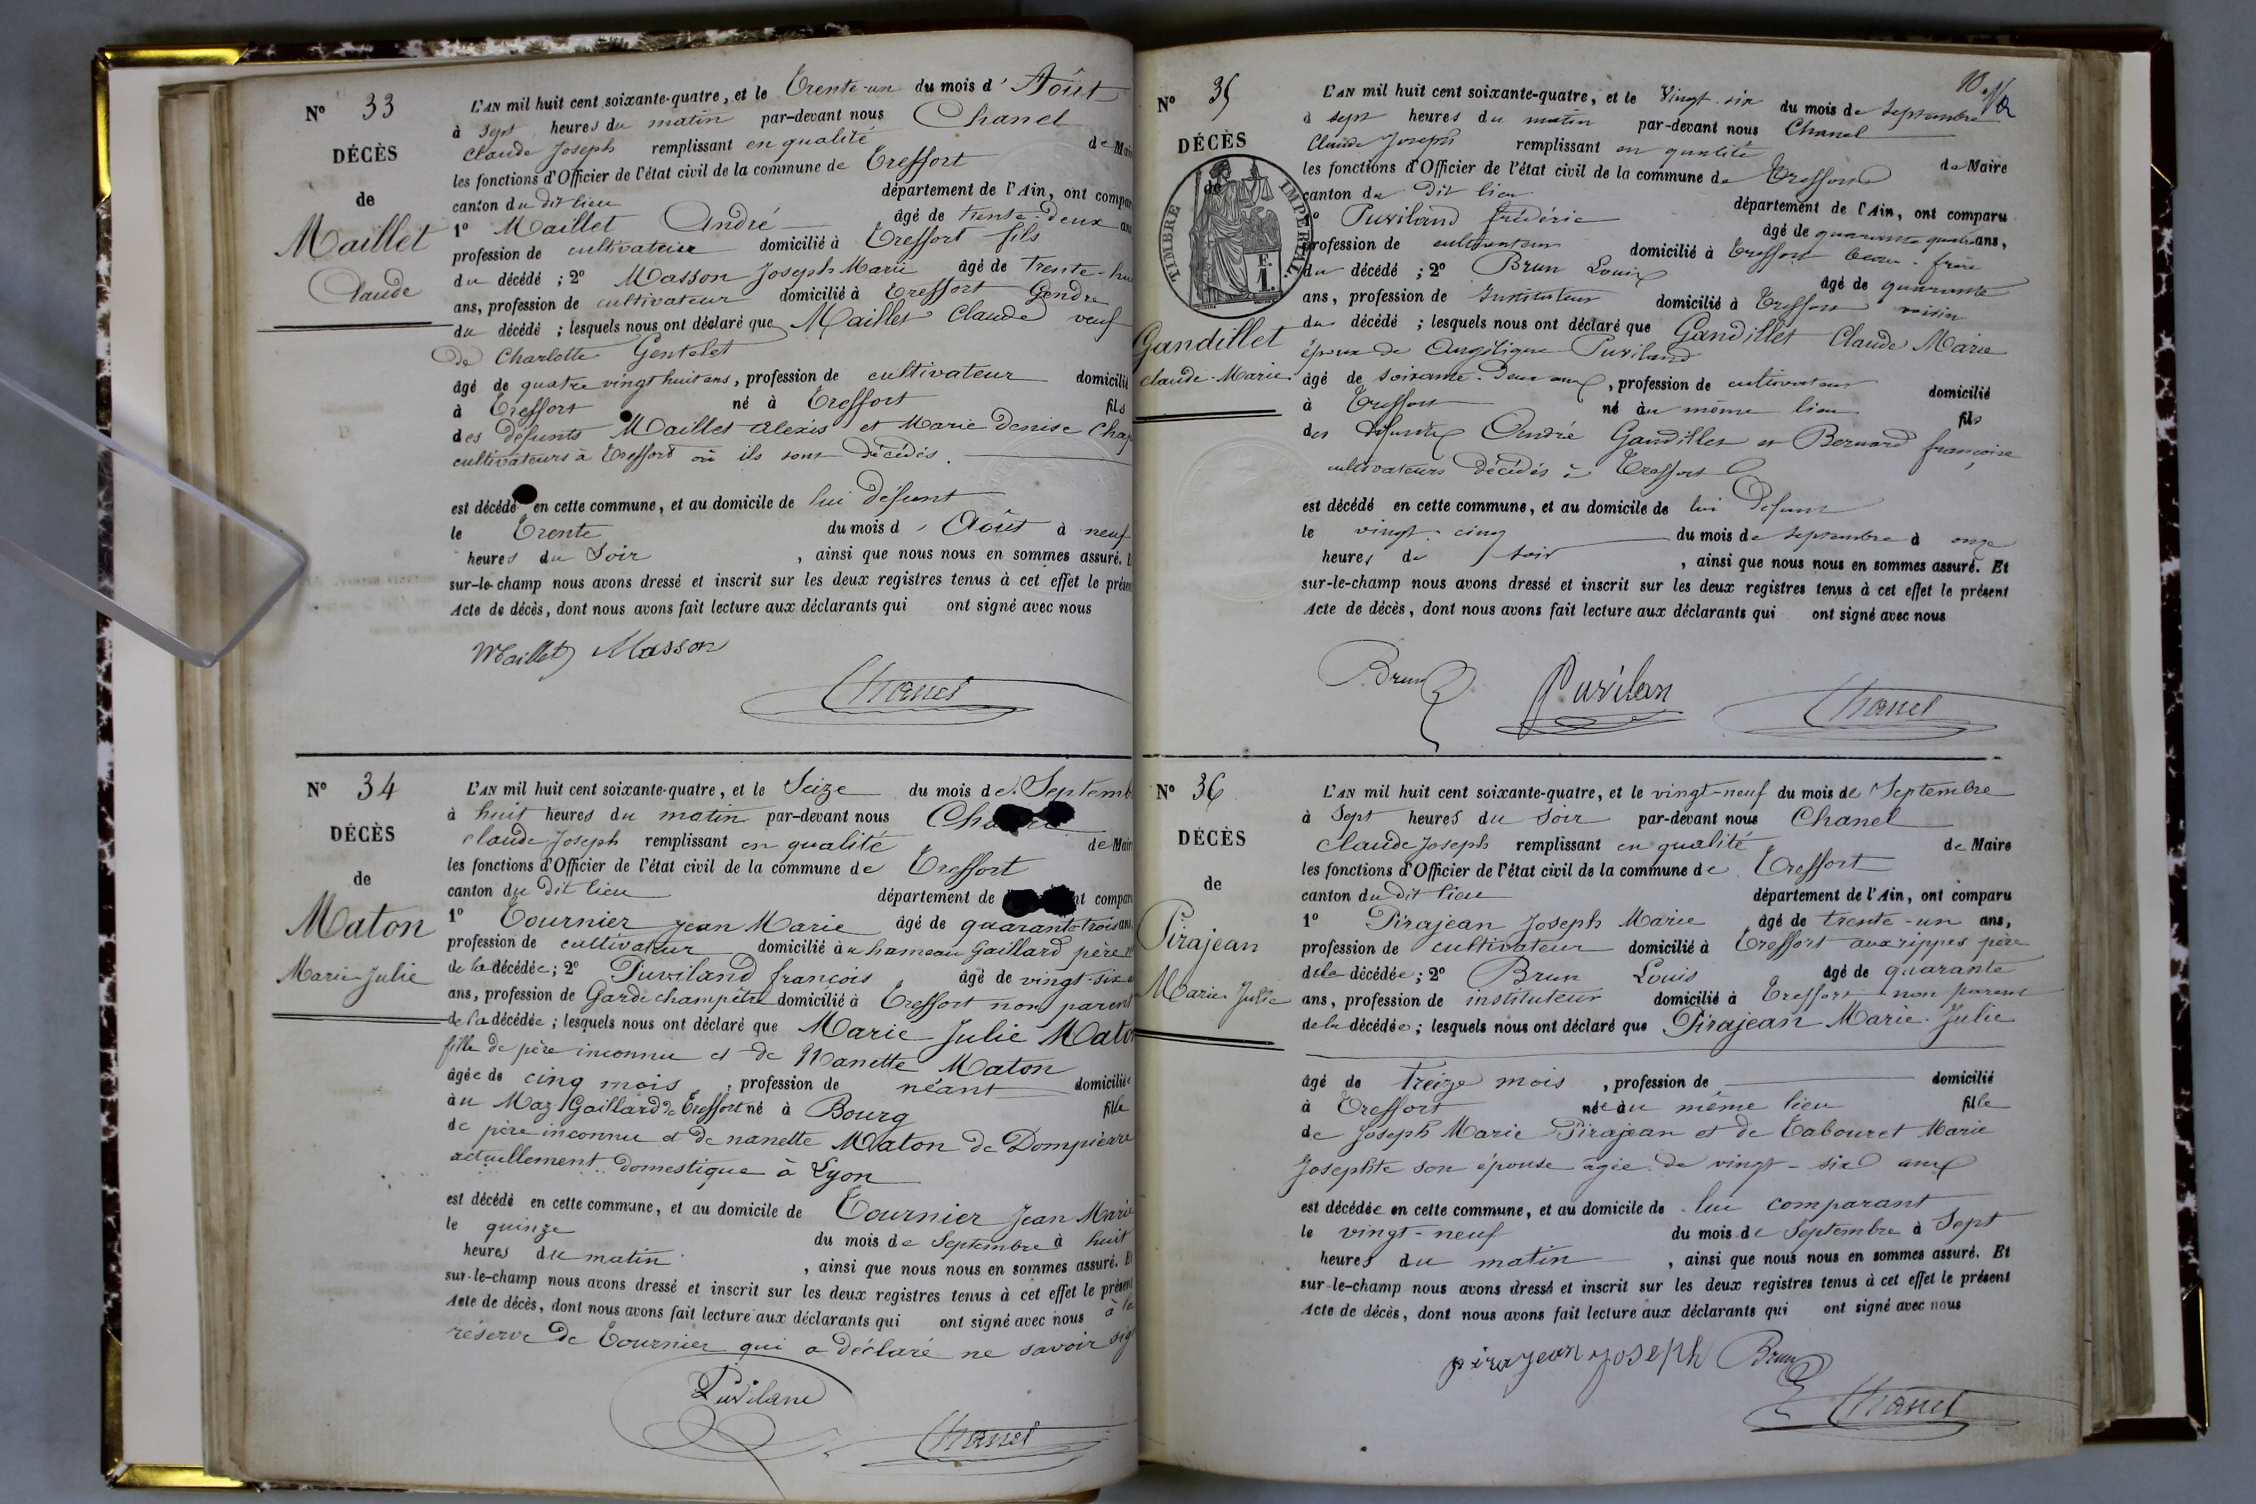 N° 33
DÉCÈS
de
Maillet
Claude
L'AN mil huit cent soixante-quatre, et le Trente-un du mois d' Août
à sept heures du matin par-devant nous Chanel
Claude Joseph remplissant en qualité de Mair
les fonctions d'Officier de l'état civil de la commune de Treffort
canton du dit lieu département de l'Ain, ont compar
1° Maillet André âgé de trente-deux ans
profession de cultivateur domicilié à Treffort fils
du décédé ; 2° Masson Joseph Marie âgé de trente-hu
ans, profession de cultivateur domicilié à Treffort Gendre
du décédé ; lesquels nous ont déclaré que Maillet Claude veuf
de Charlotte Gentelet
âgé de quatre vingt huit ans, profession de cultivateur domicilié
à Treffort né à Treffort fils
des défunts Maillet Alexis et Marie Denise Chap
cultivateurs à Treffort où ils sont décédés.
est décédé en cette commune, et au domicile de lui défunt
le Trente du mois d' Août à neuf
heures du Soir , ainsi que nous nous en sommes assuré.
sur-le-champ nous avons dressé et inscrit sur les deux registres tenus à cet effet le présen
Acte de décès, dont nous avons fait lecture aux déclarants qui ont signé avec nous
Maillet Masson
Chanel
N° 34
DÉCÈS
de
Maton
Marie-Julie
L'AN mil huit cent soixante-quatre, et le Seize du mois de Septemb
à huit heures du matin par-devant nous
Claude Joseph remplissant en qualité de Mair
les fonctions d'Officier de l'état civil de la commune de Treffort
canton du dit lieu département de nt compar
1° Tournier Jean Marie âgé de quarante trois ans
profession de cultivateur domicilié au hameau Gaillard père
de la décédée ; 2° Puviland françois âgé de vingt-six
ans, profession de Garde champêtre domicilié à Treffort non parent
de la décédée ; lesquels nous ont déclaré que Marie Julie Maton
fille de père inconnu et de Nanette Maton
âgée de cinq mois , profession de néant domiciliée
au Maz Gaillard de Treffort né à Bourg fille
de père inconnu et de nanette Maton de Dompierre
actuellement domestique à Lyon
est décédé en cette commune, et au domicile de Tournier Jean Marie
le quinze du mois de Septembre à huit
heures du matin , ainsi que nous nous en sommes assuré. Et
sur-le-champ nous avons dressé et inscrit sur les deux registres tenus à cet effet le présent
Acte de décès, dont nous avons fait lecture aux déclarants qui ont signé avec nous à la
réserve de Tournier qui a déclaré ne savoir sig
Puviland
Chanel
10
N° 35
DÉCÈS
de
TIMBRE IMPÉRIAL
F.
1.
Gandillet
Claude-Marie
L'AN mil huit cent soixante-quatre, et le Vingt-six du mois de septembre
à sept heures du matin par-devant nous Chanel
Claude Joseph remplissant en qualité de Maire
les fonctions d'Officier de l'état civil de la commune de Treffort
canton du dit lieu département de l'Ain, ont comparu
1° Puviland frédéric âgé de quarante quatre ans,
profession de cultivateur domicilié à Treffort beau-frère
du décédé ; 2° Brun Louis âgé de quarante
ans, profession de Instituteur domicilié à Treffort voisin
du décédé ; lesquels nous ont déclaré que Gandillet Claude Marie
époux de Angélique Puviland
âgé de soixante-deux ans , profession de cultivateur domicilié
à Treffort né au même lieu fils
des défunts André Gandillet et Bernard françoise
cultivateurs décédés à Treffort
est décédé en cette commune, et au domicile de lui Défunt
le vingt-cinq du mois de septembre à onze
heures de soir , ainsi que nous nous en sommes assuré. Et
sur-le-champ nous avons dressé et inscrit sur les deux registres tenus à cet effet le présent
Acte de décès, dont nous avons fait lecture aux déclarants qui ont signé avec nous
Brun Puvilan Chanel
N° 36
DÉCÈS
de
Pirajean
Marie-Julie
L'AN mil huit cent soixante-quatre, et le vingt-neuf du mois de Septembre
à Sept heures du soir par-devant nous Chanel
Claude Joseph remplissant en qualité de Maire
les fonctions d'Officier de l'état civil de la commune de Treffort
canton du dit lieu département de l'Ain, ont comparu
1° Pirajean Joseph Marie âgé de trente-un ans,
profession de cultivateur domicilié à Treffort aux rippes père
de la décédée ; 2° Brun Louis âgé de quarante
ans, profession de instituteur domicilié à Treffort non parent
de la décédée ; lesquels nous ont déclaré que Pirajean Marie-Julie
âgé de Treize mois , profession de domicilié
à Treffort née au même lieu fille
de Joseph Marie Pirajean et de Tabouret Marie
Josephte son épouse âgée de vingt-six ans
est décédée en cette commune, et au domicile de lui comparant
le vingt-neuf du mois de Septembre à Sept
heures du matin , ainsi que nous nous en sommes assuré. Et
sur-le-champ nous avons dressé et inscrit sur les deux registres tenus à cet effet le présent
Acte de décès, dont nous avons fait lecture aux déclarants qui ont signé avec nous
pirajean joseph Brun
Chanel